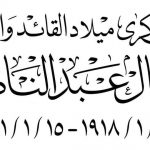 كرى ميلاد القائد وا
ال عبد النا
١/١/١٥-١٩١٨/١/